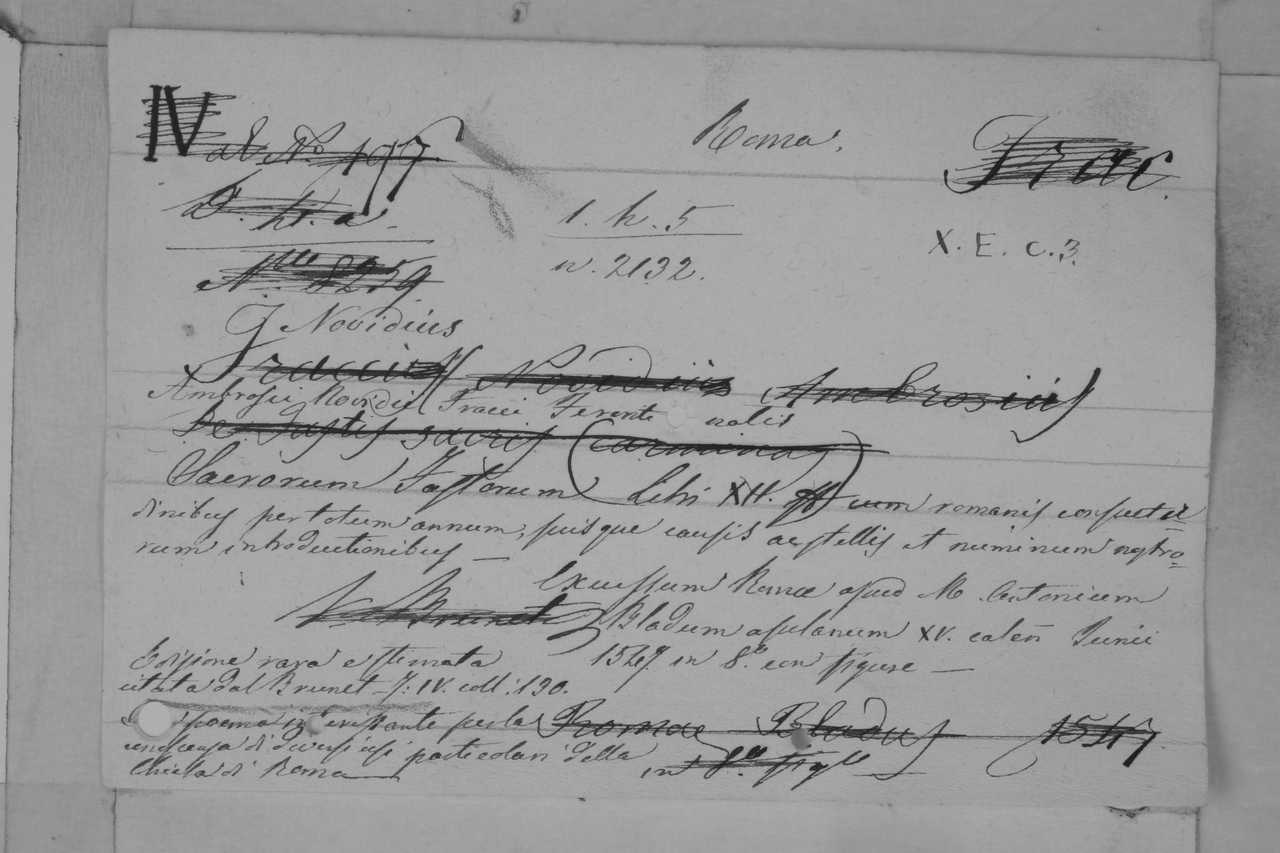 IV ab. No. 197. Roma. Frac.
D. II. a. 1. h. 5 X. E. c. 3.
8259 n. 2132.
Novidius
Fraccius Novidius Ambrosius
Ambrosii Novidii Fracci Ferentinatis
De Fastis sacris (carmina)
Sacrorum Fastorum Libri XII. cum romanis consuetu
dinibus per totum annum, suisque causis ac stellis et numinum nostro=
rum introductionibus —
Excussum Romae apud M. Antonium
V. Brunet Bladum asulanum XV. calen Junii
Edizione rara e stimata 1547 in 8.º con figure —
citata dal Brunet T. IV. coll. 130.
poema interessante per la Romae Bladus 1547.
di diversi usi particolari della in 8.º fig.
Chiesa di Roma